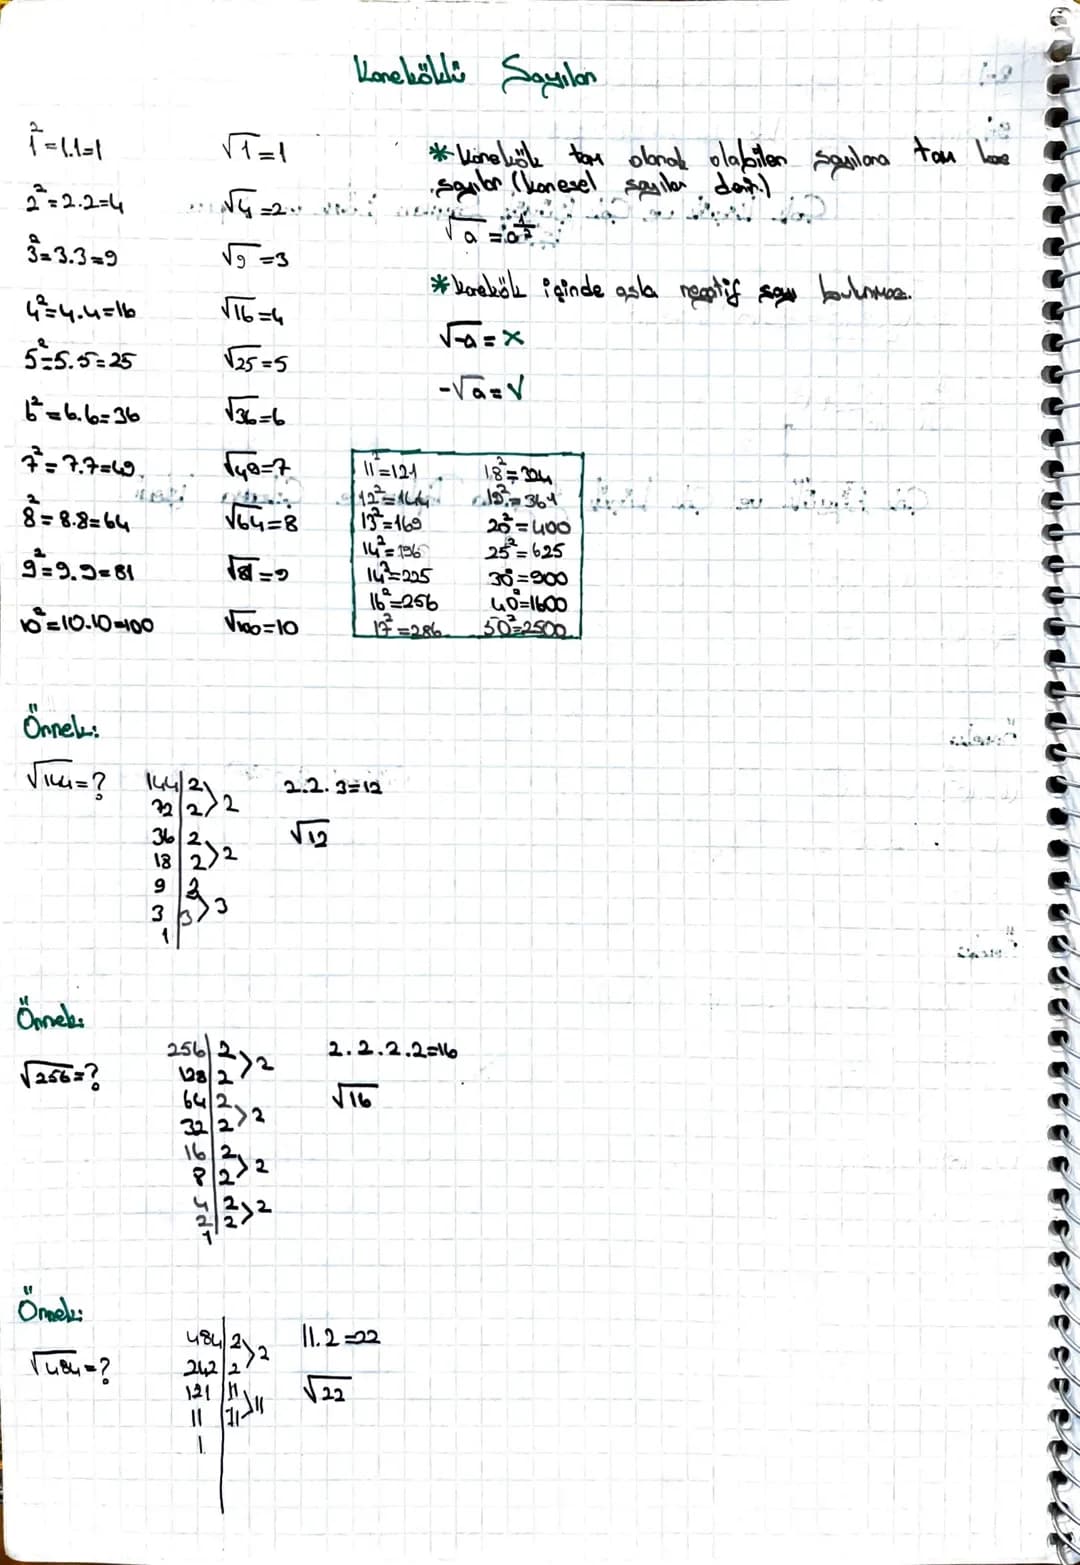 Kareköklü Sayılar
1² = 1.1=1
√1 = 1
2² = 2.2=4
√4 = 2
3² = 3.3=9
√9 = 3
4² = 4.4=16
√16 = 4
5² = 5.5=25
√25 = 5
6² = 6.6=36
√36 = 6
7² = 7.7=49
√49 = 7
8² = 8.8=64
√64 = 8
9² = 9.9=81
√81 = 9
10² = 10.10=100
√100 = 10
* Karekök tam olarak olabilen sayılara tam kare
sayılar (karesel sayılar denir.)
√a = a^1/2
* karekök içinde asla negatif sayı bulunmaz.
√-a = x
-√a = √
11²=121 18²=324
12²=144 19²=361
13²=169 20²=400
14²=196 25²=625
14²=225 30²=900
16²=256 40²=1600
17²=286 50²=2500
Örnek:
√144 = ?
144 2
72 2 > 2
36 2
18 2 > 2
9 3
3 3 > 3
1
2.2.3=12
√12
Örnek:
√256 = ?
256 2
128 2 > 2
64 2
32 2 > 2
16 2
8 2 > 2
4 2
2 2 > 2
1
2.2.2.2=16
√16
Örnek:
√484 = ?
484 2
242 2 > 2
121 11
11 11 > 11
1
11.2=22
√22